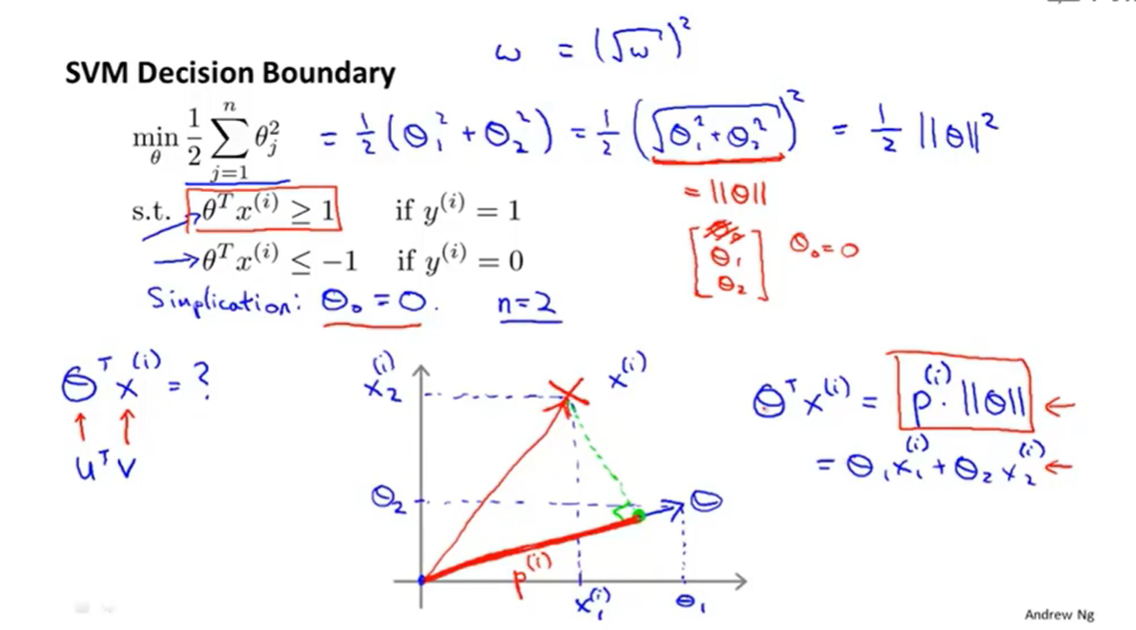 ω = (√ω)²
SVM Decision Boundary
min_θ 1/2 Σ_{j=1}^{n} θ_j² = 1/2 (θ₁² + θ₂²) = 1/2 (√(θ₁² + θ₂²))² = 1/2 ||θ||²
= ||θ||
s.t. θᵀx⁽ⁱ⁾ ≥ 1 if y⁽ⁱ⁾ = 1
[θ₀ θ₁ θ₂] θ₀ = 0
→ θᵀx⁽ⁱ⁾ ≤ −1 if y⁽ⁱ⁾ = 0
Simplication: θ₀ = 0. n=2
θᵀx⁽ⁱ⁾ = ?
↑ ↑
uᵀv
x₂⁽ⁱ⁾
x⁽ⁱ⁾
θ₂
θ
p⁽ⁱ⁾
x₁⁽ⁱ⁾
θ₁
θᵀx⁽ⁱ⁾ = p⁽ⁱ⁾ · ||θ|| ←
= θ₁x₁⁽ⁱ⁾ + θ₂x₂⁽ⁱ⁾ ←
Andrew Ng